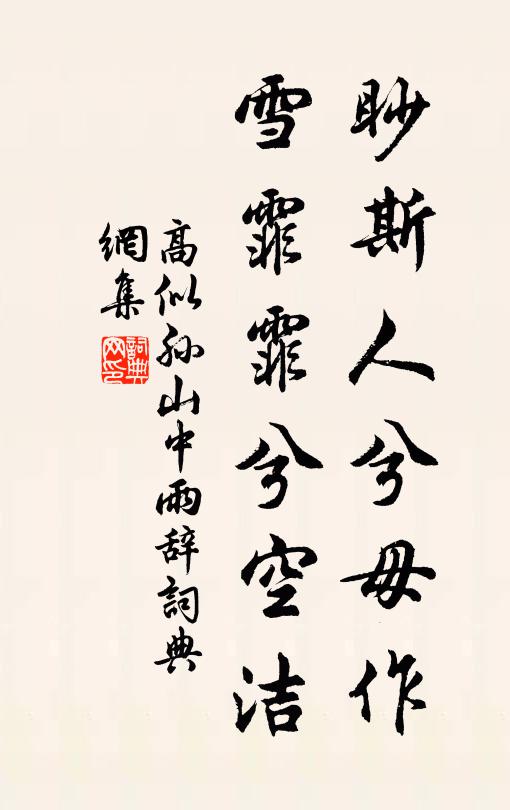 眇斯人兮毋作
雪霏霏兮空洁
高似孙山中雨辞詞典
網集
詞典
网印